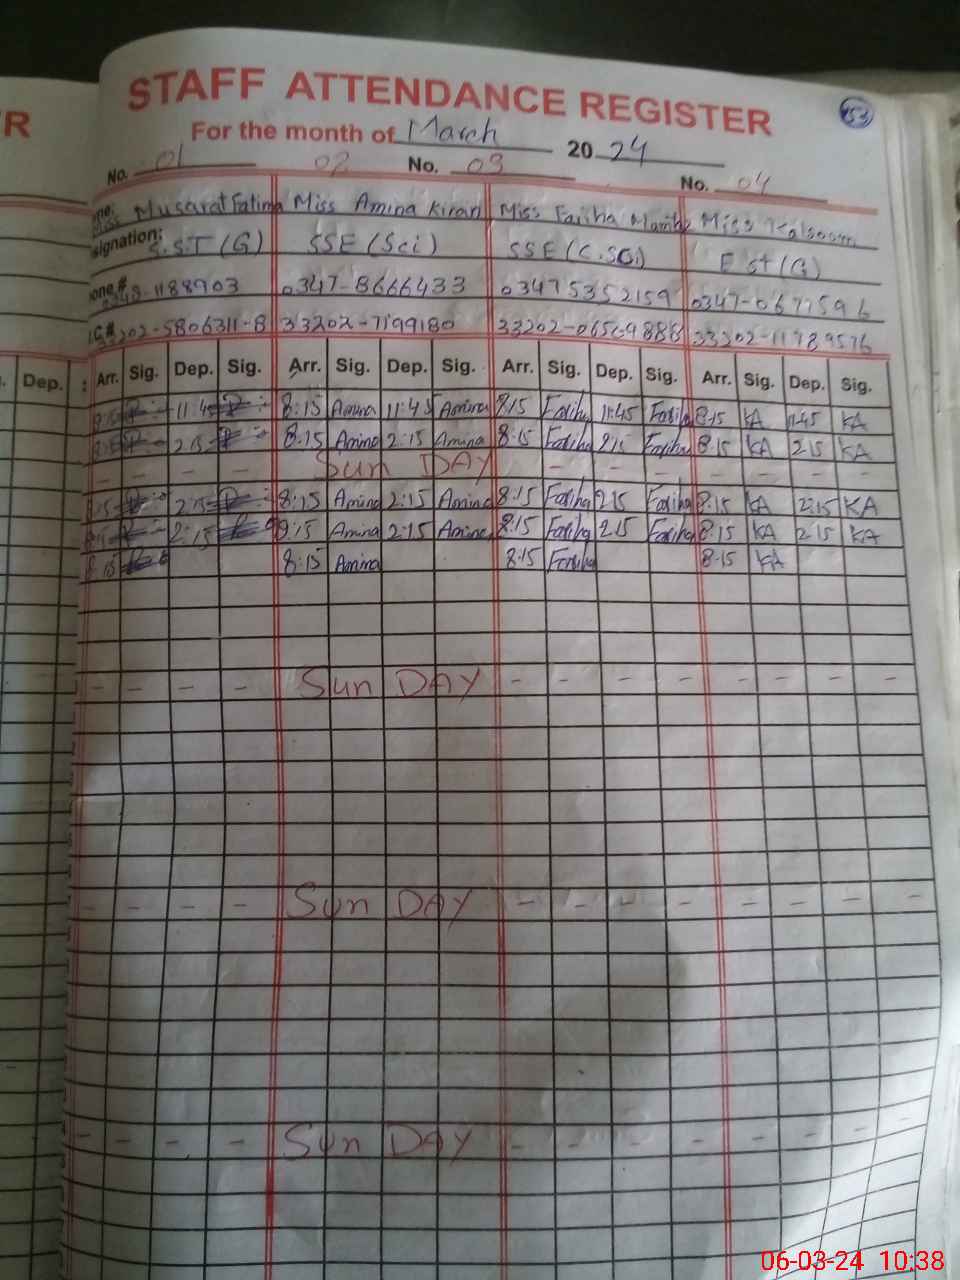 R
STAFF ATTENDANCE REGISTER
53
For the month of March 2024
No. 01 02 No. 03 No. 04
Musarat Fatima Miss Amina Kiran Miss Fariha Miss Kalsoom
signation: S.ST (G) SSE (Sci) SSE (C.SCi) E st (G)
one # 0343-1188903 0347-8666433 03475352159 0347-0677596
202-5806311-8 33202-7199180 33202-
Dep. : Arr. Sig. Dep. Sig. Arr. Sig. Dep. Sig. Arr. Sig. Dep. Sig. Arr. Sig. Dep. Sig.
8:15 11:45 8:15 Amina 11:45 Amina 8:15 Fariha 11:45 Fariha 8:15 KA 11:45 KA
8:15 2:15 8:15 Amina 2:15 Amina 8:15 Fariha 2:15 Fariha 8:15 KA 2:15 KA
- - - - Sun DAY - - - - - - - -
8:15 2:15 8:15 Amina 2:15 Amina 8:15 Fariha 2:15 Fariha 8:15 KA 2:15 KA
8:15 2:15 8:15 Amina 2:15 Amina 8:15 Fariha 2:15 Fariha 8:15 KA 2:15 KA
8:15 8:15 Amina 8:15 Fariha 8:15 KA
- - - - Sun DAY - - - - - - - -
- - - - Sun DAY - - - - - - - -
- - - - Sun DAY - - - - - - - -
06-03-24 10:38